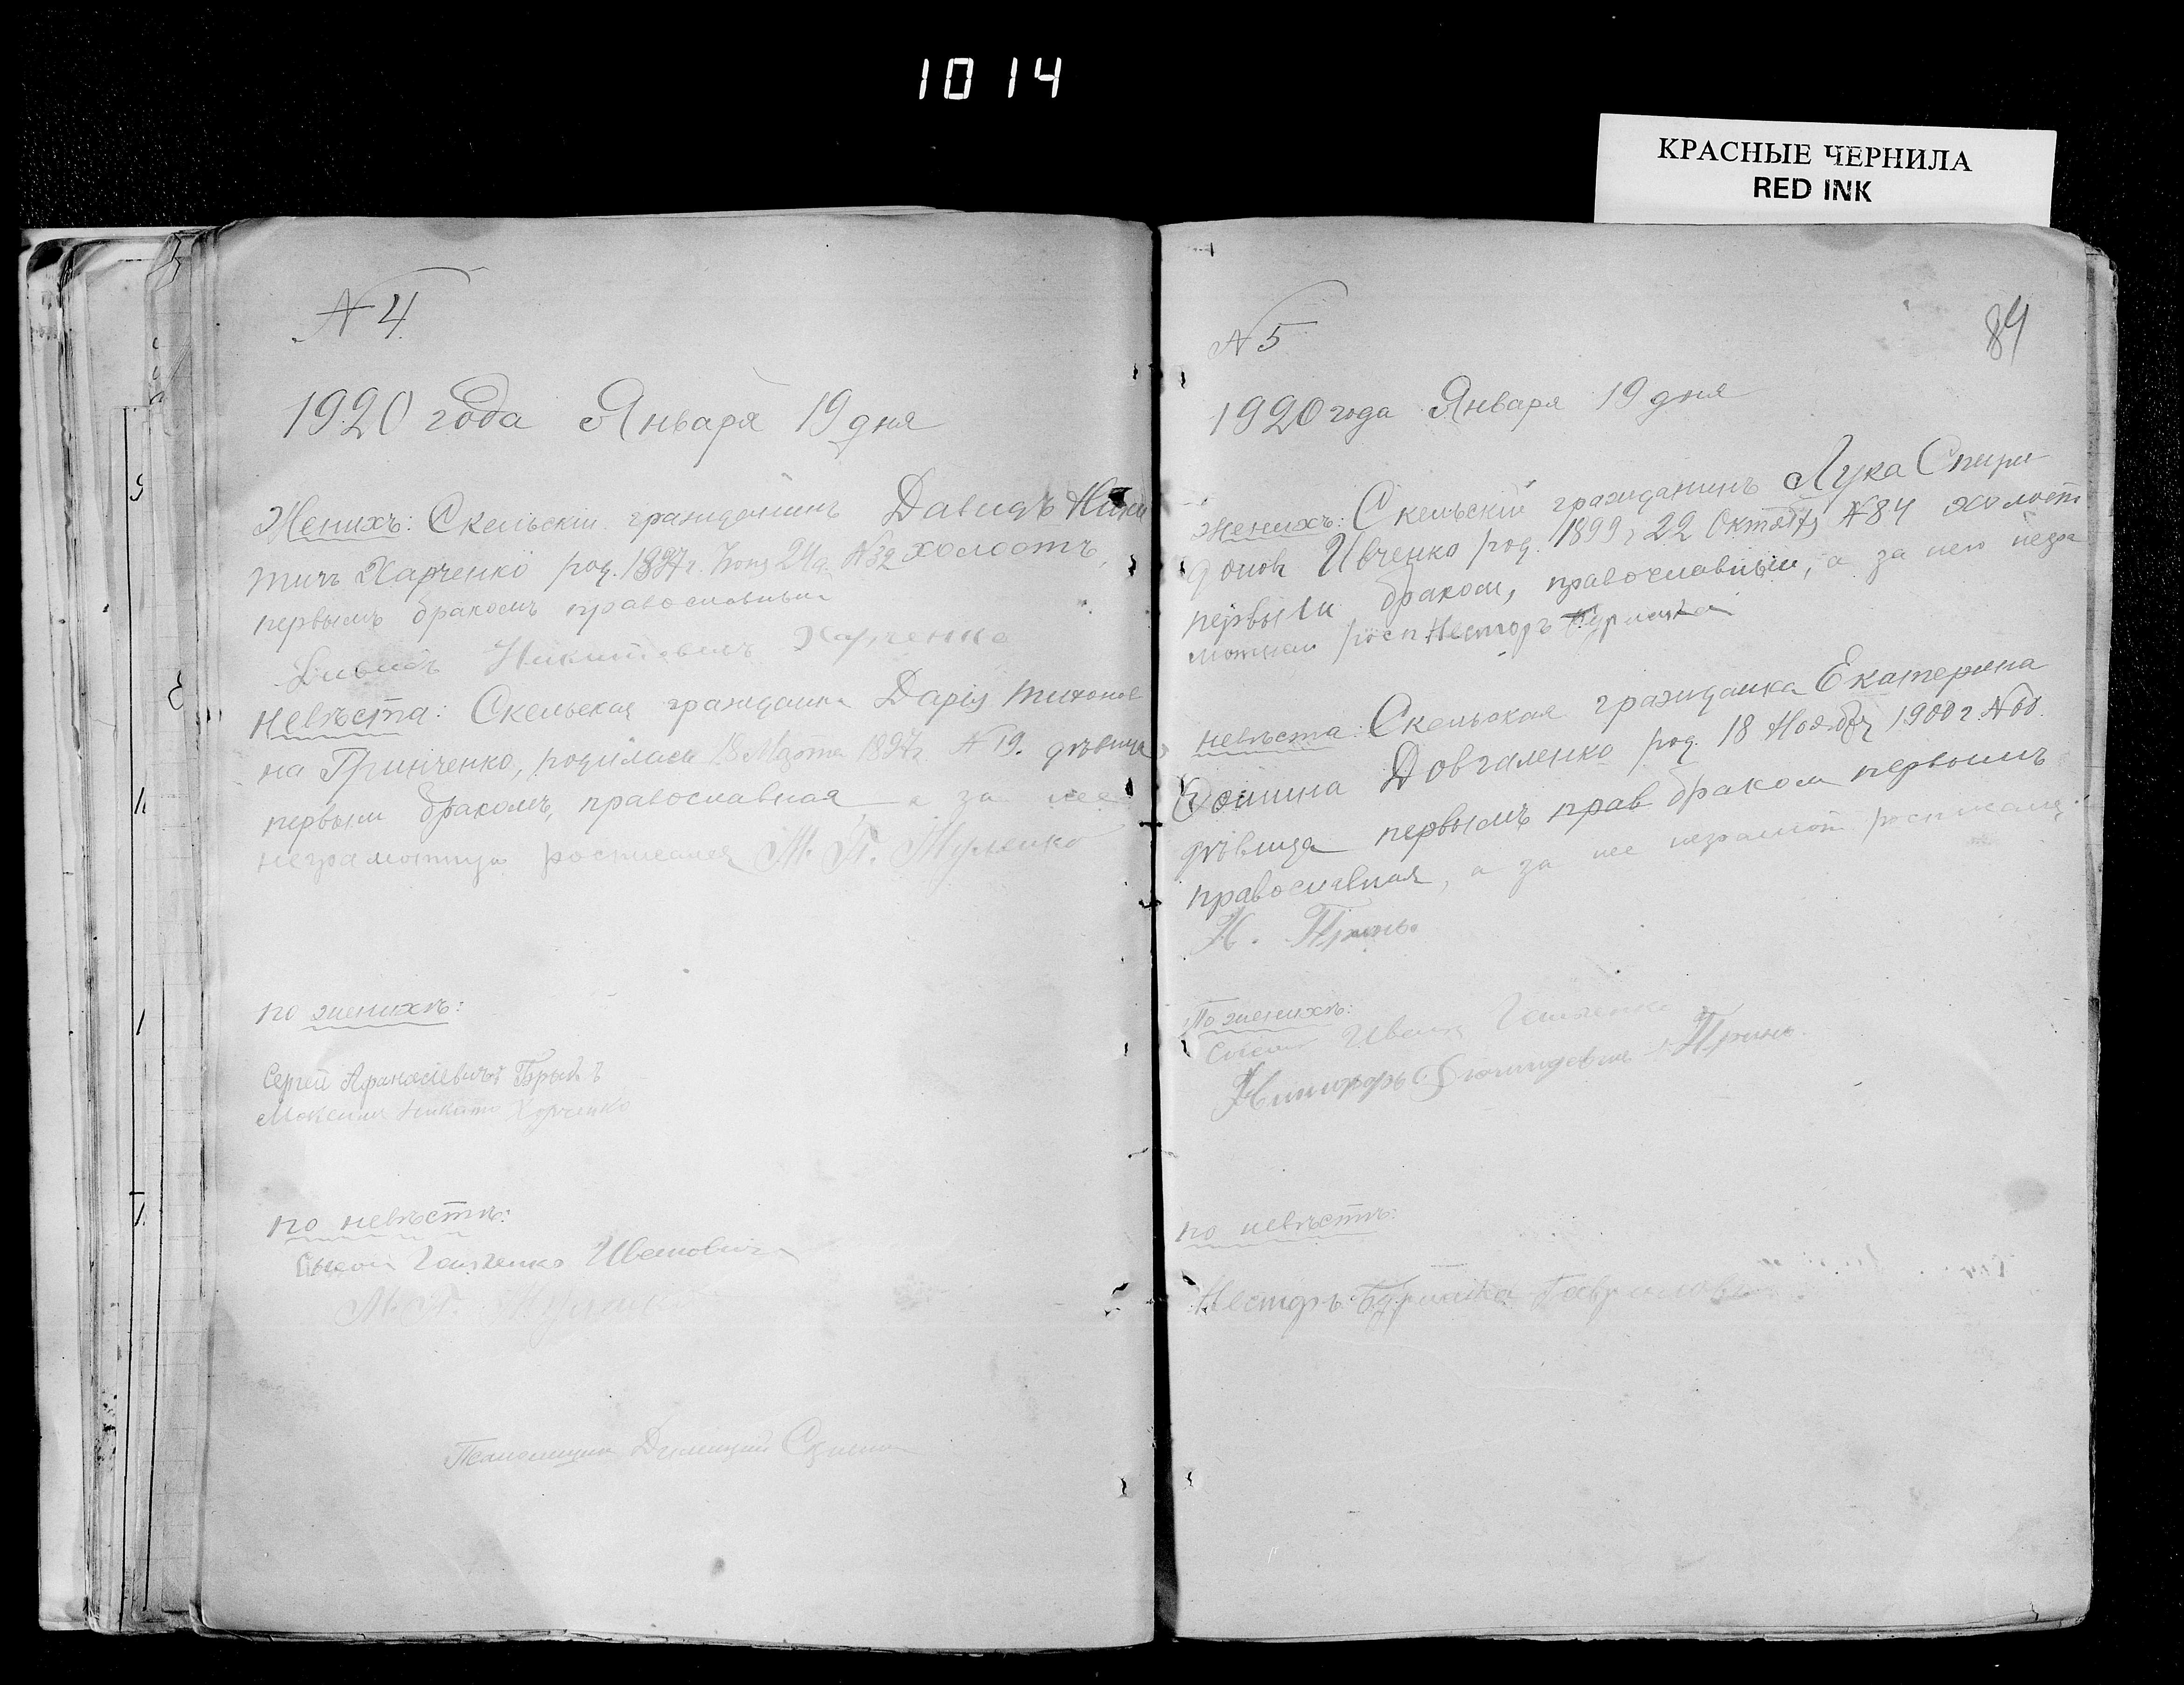 1014
КРАСНЫЕ ЧЕРНИЛА
RED INK
N 4
1920 года Января 19 дня
Женихъ: Скельскій гражданинъ Давидъ Ники
тичъ Харченко род. 1897 г. 24 д. N 32 холостъ,
первымъ бракомъ православный
Давидъ Никитовичъ Харченко
Невѣста: Скельская гражданка Дарія Тихонов
на Гринченко, родилась 18 Марта 1897 г N 19. дѣвица
первым бракомъ, православная а за нее
неграмотную росписался М. П. Муленко
по женихѣ:
Сергей Афанасіевичъ
Максим Никито Харченко
по невѣстѣ:
Ивановичъ
Димитрій
84
N 5
1920 года Января 19 дня
Женихъ: Скельскій гражданинъ Лука Спири
донов Ивченко род. 1899 г 22 Октября N 84 холост
первым браком, православный, а за него негра
мотнаго росп Несторъ
Невѣста: Скельская гражданка Екатерина
Фомина Довгаленко род. 18 Ноября 1900 г.
дѣвица первымъ прав браком первымъ
православная, а за нее неграмот росписался
Н. Принь
По женихѣ:
Иван
Никифоръ Принь
по невѣстѣ:
Несторъ Гаврилович